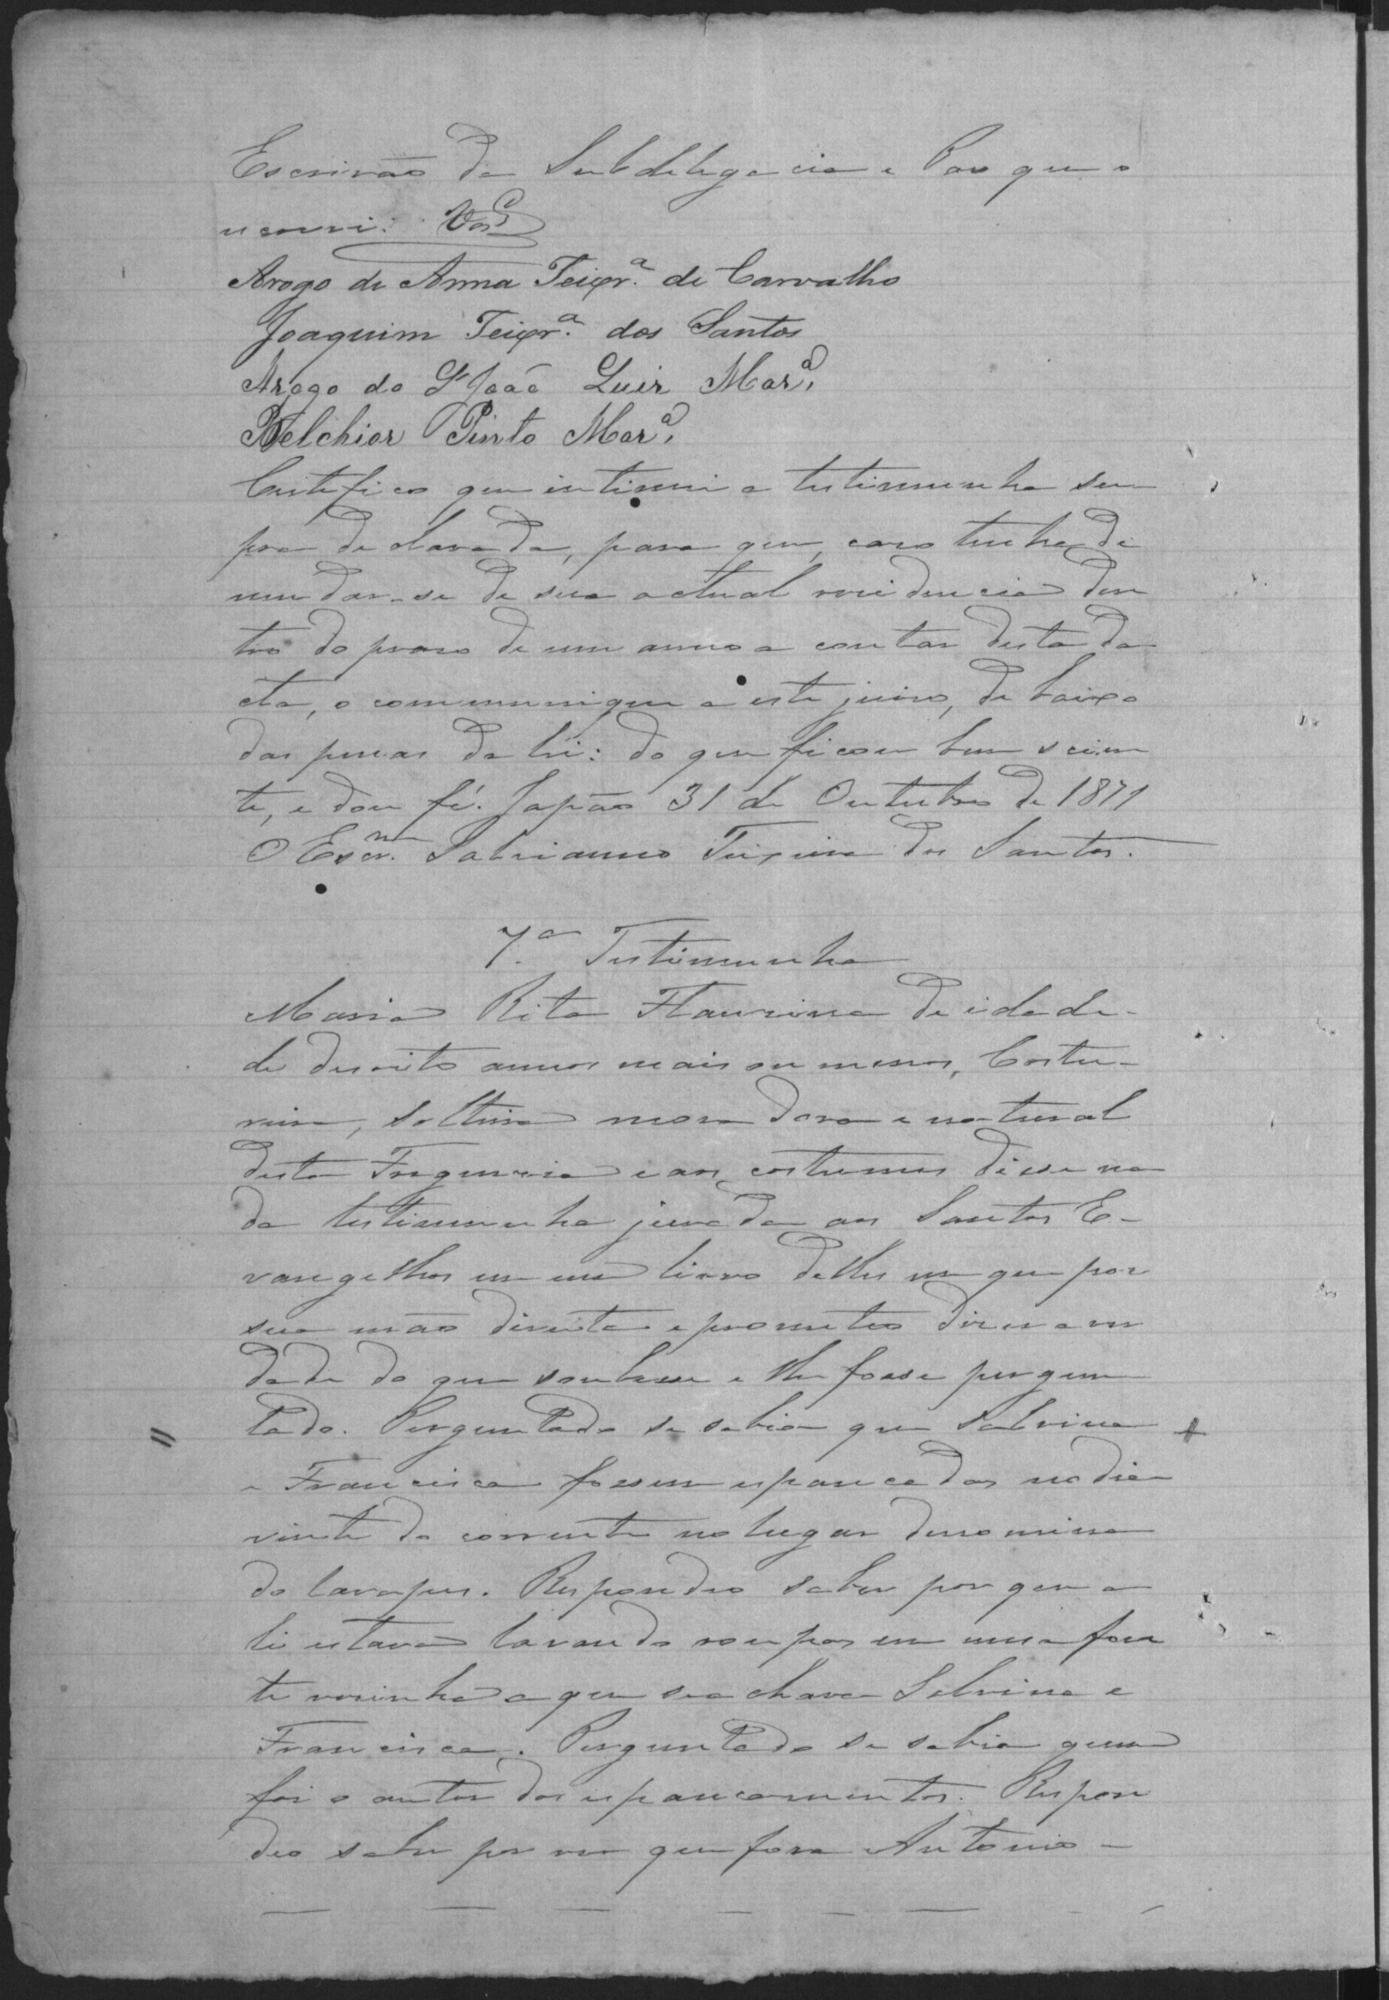 Escrivão da Subdelegacia e Paz que o
escrevi. Vas.ᶜ
Arogo de Anna Teixr.ª de Carvalho
Joaquim Teixr.ª dos Santos
Arogo do Sʳ João Luiz Mor.ª
Belchior Pinto Mor.ª
Certifico que intimei a testimunha su
pra declarada, para que, caso tenha de
mudar-se de sua actual residencia den
tro do praso de um anno a contar desta da
cta, o communique a este juizo, de baixo
das penas da lei: do que ficou bem scien
te, e dou fé. Japão 31 de Outubro de 1871
O Escr.ᵐ Salvianno Teixeira dos Santos.
7.ª Testimunha
Maria Rita Flauzina de idade
de desoito annos mais ou menos, Costu-
reira, solteira moradora e natural
desta Freguezia e aos costumes disse na
da testimunha jurada aos Santos E-
vangelhos em um livro delles em que poz
sua mão direita e prometeo dizer a ver
dade do que soubesse e lhe fosse pergun
tado. Perguntado se sabia que Salvina
e Francisca fossem espancadas no dia
vinte do corrente no lugar denomina
do lavapes. Respondeo saber por que a
li estava lavando roupas em uma fon
te vesinha a que se achava Salvina e
Francisca. Perguntado se sabia quem
foi o autor dos espancamentos. Respon
deo saber por ver que fora Antonio